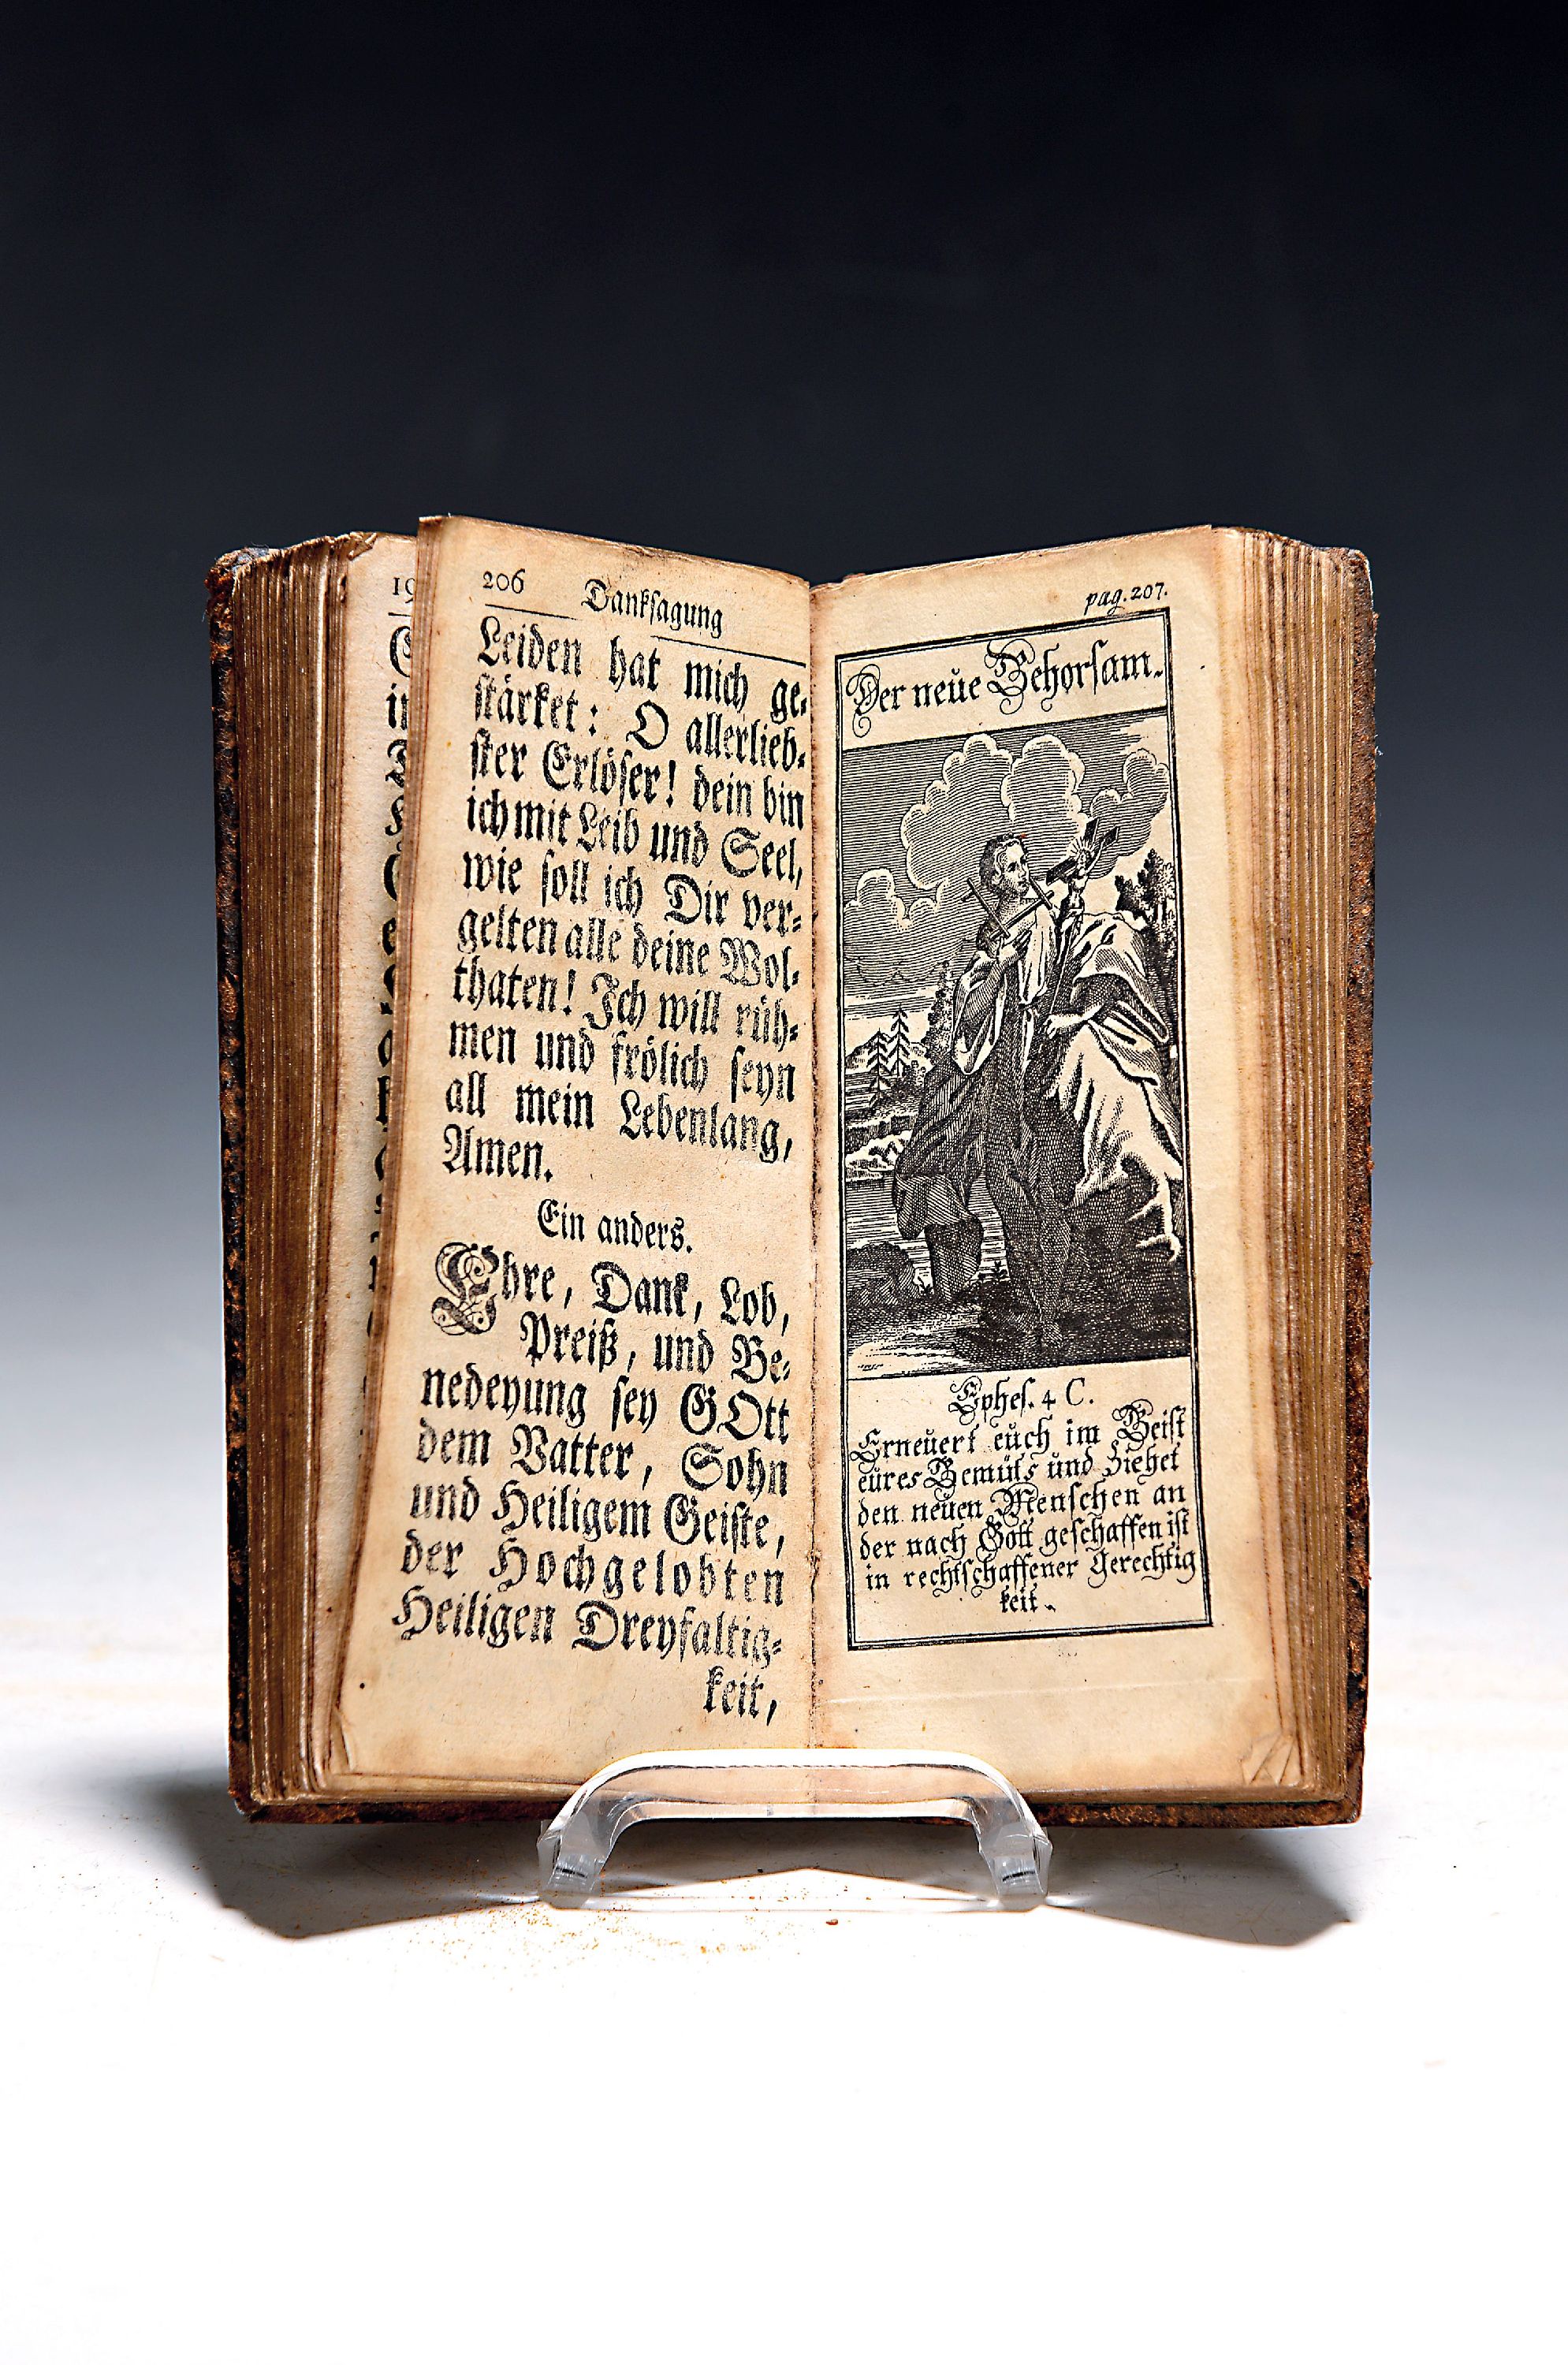 206 Danksagung
Leiden hat mich ge-
stärket: O allerlieb-
ster Erlöser! dein bin
ich mit Leib und Seel,
wie soll ich Dir ver-
gelten alle deine Wol-
thaten! Ich will rüh-
men und frölich seyn
all mein Lebenlang,
Amen.
Ein anders.
Ehre, Dank, Lob,
Preiß, und Be-
nedeyung sey GOtt
dem Vatter, Sohn
und Heiligem Geiste,
der Hochgelobten
Heiligen Dreyfaltig-
keit,
pag. 207.
Der neüe Gehorsam.
Ephes. 4 C.
Erneüert eüch im Geist
eüres Gemüts und ziehet
den neüen Menschen an
der nach Gott geschaffen ist
in rechtschaffener Gerechtig
keit.